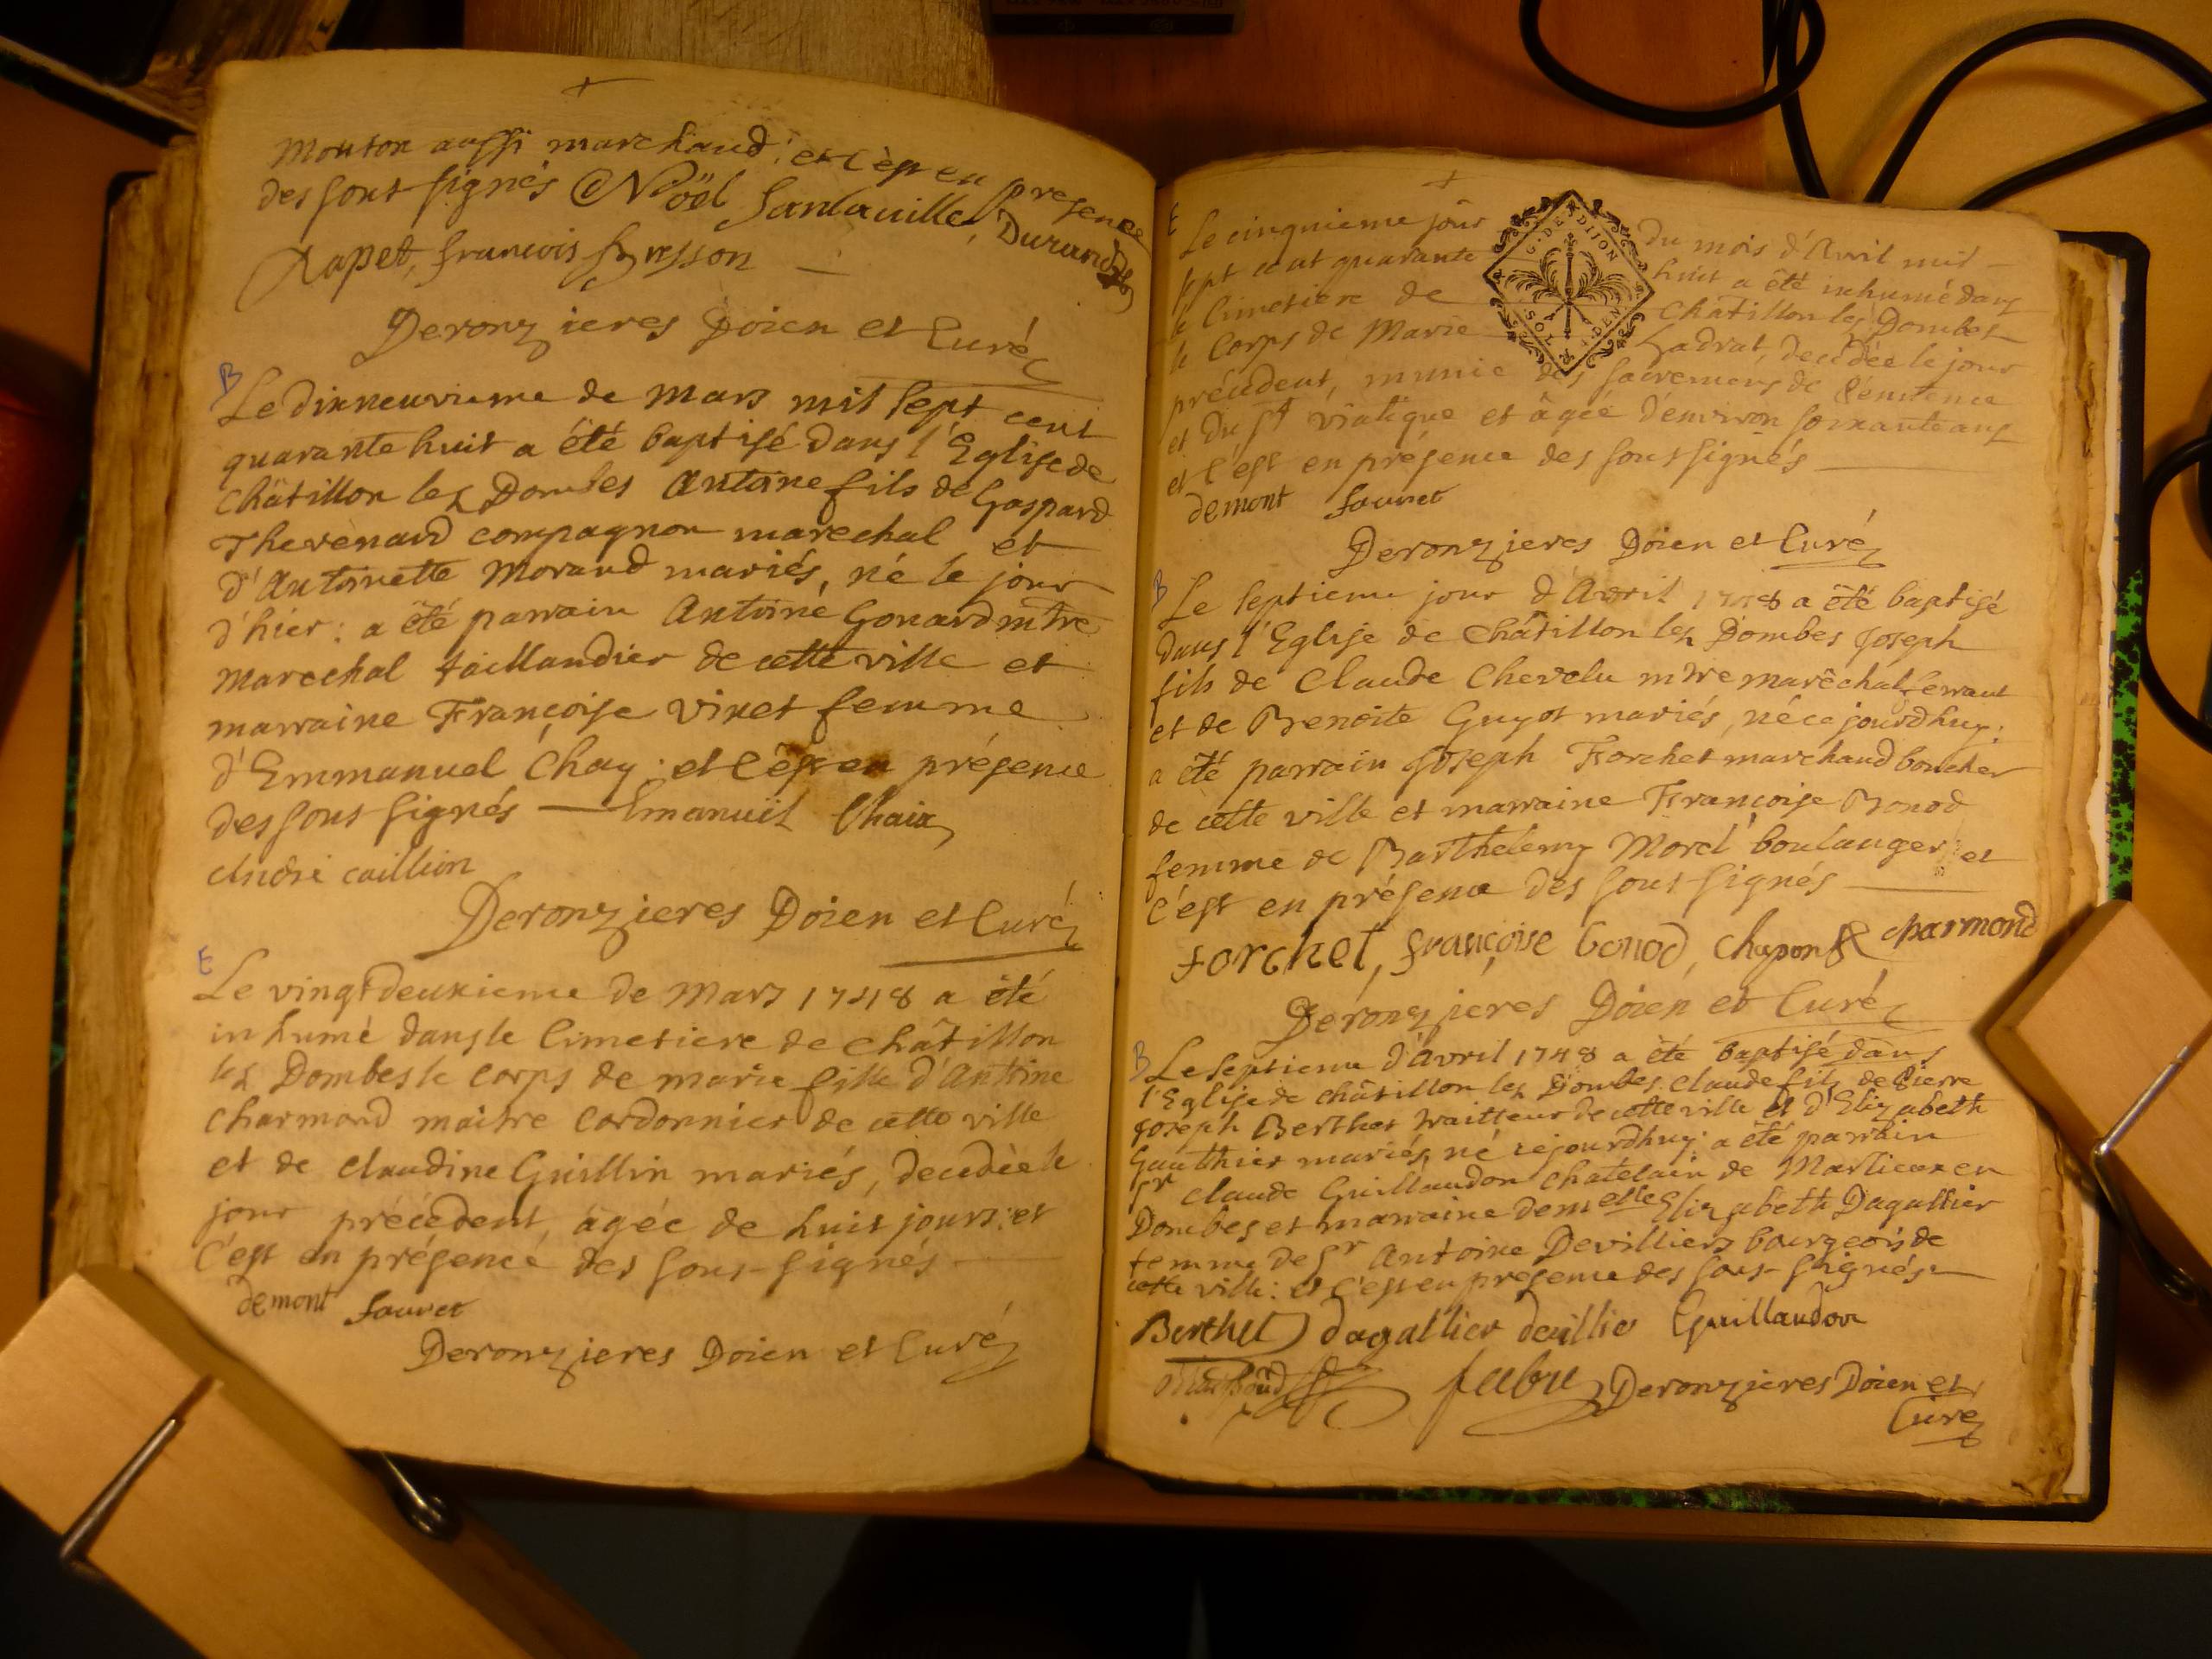 Mouton aussi marchand: et c'est en presence
des sous signés Noël Sanlaville, Durand
Rapet, francois
Deronzieres Doien et Curé
B
Le dixneuvieme de Mars mil sept cent
quarante huit a été baptisé dans l'Eglise de
Châtillon lez Dombes Antoine fils de Gaspard
Thevenard compagnon marechal et
d'Antoinette Morand mariés, né le jour
d'hier: a été parrain Antoine Gonard mtre
Marechal taillandier de cette ville et
marraine Françoise Vinet femme
d'Emmanuel Chay: et c'est en présence
des sous signés Emanuil Chaix
André caillion
Deronzieres Doien et Curé
E
Le vingtdeuxieme de Mars 1748 a été
inhumé dans le Cimetiere de Châtillon
lez Dombes le corps de marie fille d'Antoine
Charmond maitre Cordonnier de cette ville
et de Claudine Guillin mariés, decedée le
jour précédent, agée de huit jours: et
c'est en présence des sous-signés
demont fauret
Deronzieres Doien et Curé
E
Le cinquieme jour du mois d'Avril mil
sept cent quarante huit a été inhumé dans
le Cimetiere de Châtillon lez Dombes
le Corps de Marie Ladrat, decedée le jour
précédent, munie des sacremens de Pénitence
et du St Viatique et âgée d'environ soixante ans
et c'est en présence des sous signés
demont fauret
G. DE DIJON
SOL
DEN
Deronzieres Doien et Curé
B
Le septieme jour d'Avril 1748 a été baptisé
dans l'Eglise de Châtillon lez Dombes Joseph
fils de Claude Chevelu mtre marêchal ferrant
et de Benoite Guyot mariés, né ce jourdhuy:
a été parrain Joseph Forchet marchand boucher
de cette ville et marraine Françoise Bonod
femme de Barthelemy Morel boulanger et
c'est en présence des sous signés
forchet, françoise bonod, chapon & charmond
Deronzieres Doien et Curé
B
Le septieme d'Avril 1748 a été baptisé dans
l'Eglise de châtillon lez Dombes Claude fils de Pierre
Joseph Berthet traitteur de cette ville et d'Elizabeth
Gauthier mariés, né cejourdhuy: a été parrain
Sr Claude Guillaudon chatelain de Marlieux en
Dombes et marraine demoiselle Elizabeth Dagallier
femme de Sr Antoine Devilliers bourgeois de
cette ville: et c'est en presence des sous-signés
Berthet dagallier Guillaudon
febvre Deronzieres Doien et
Curé